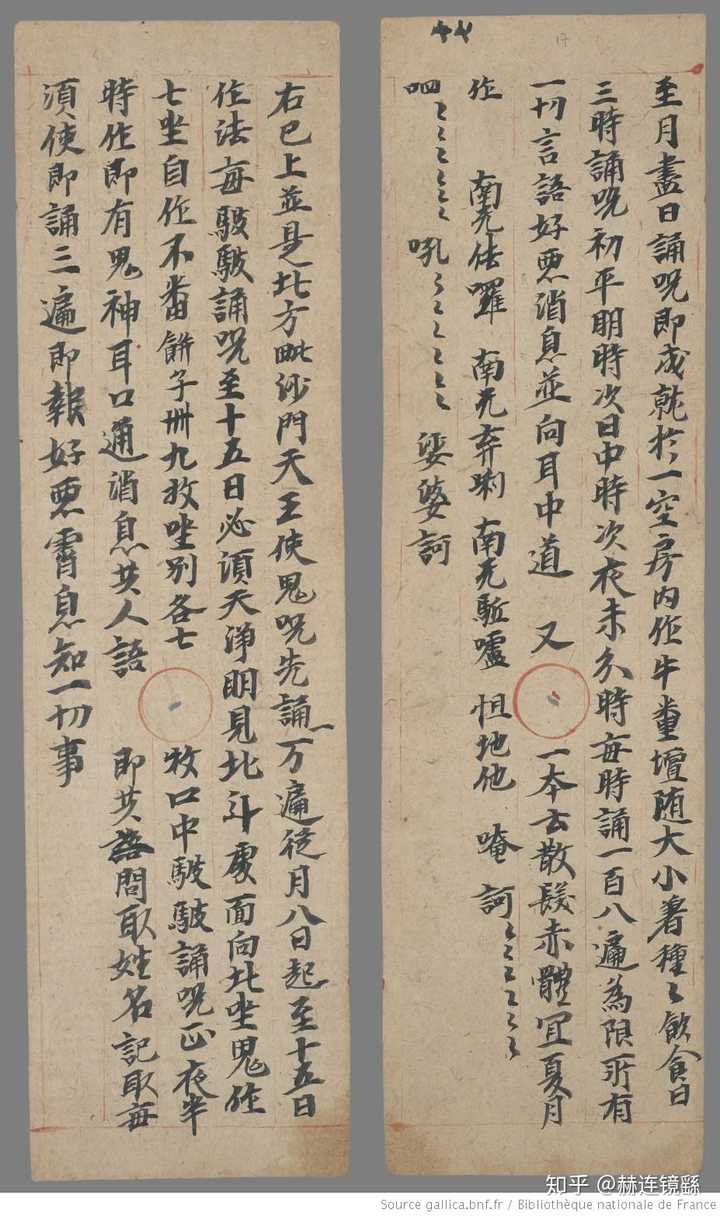 至月盡日誦咒即成就於一空房內作牛糞壇随大小著種〻飲食日
三時誦咒初平明時次日中時次夜未久時每時誦一百八遍為限所有
一切言語好悪消息並向耳中道 又 一本云散髮赤體冝夏月
作 南无佉囉 南无弃唎 南无 嚧 怛地他 唵 訶〻〻〻〻〻〻
呬〻〻〻〻〻〻 吼〻〻〻〻〻〻 娑婆訶
右已上並是北方毗沙門天王使鬼咒先誦一万遍從月八日起至十五日
作法每 誦咒至十五日必須天淨明見北斗處面向北坐鬼
七坐自作不番餅子卌九枚坐別各七 枚口中 誦咒正夜半
時作即有鬼神耳口通消息共人語 即共語問取姓名記取每
須使即誦三遍即報好悪霄息知一切事
17
知乎 @赫连镜繇
Source gallica.bnf.fr / Bibliothèque nationale de France